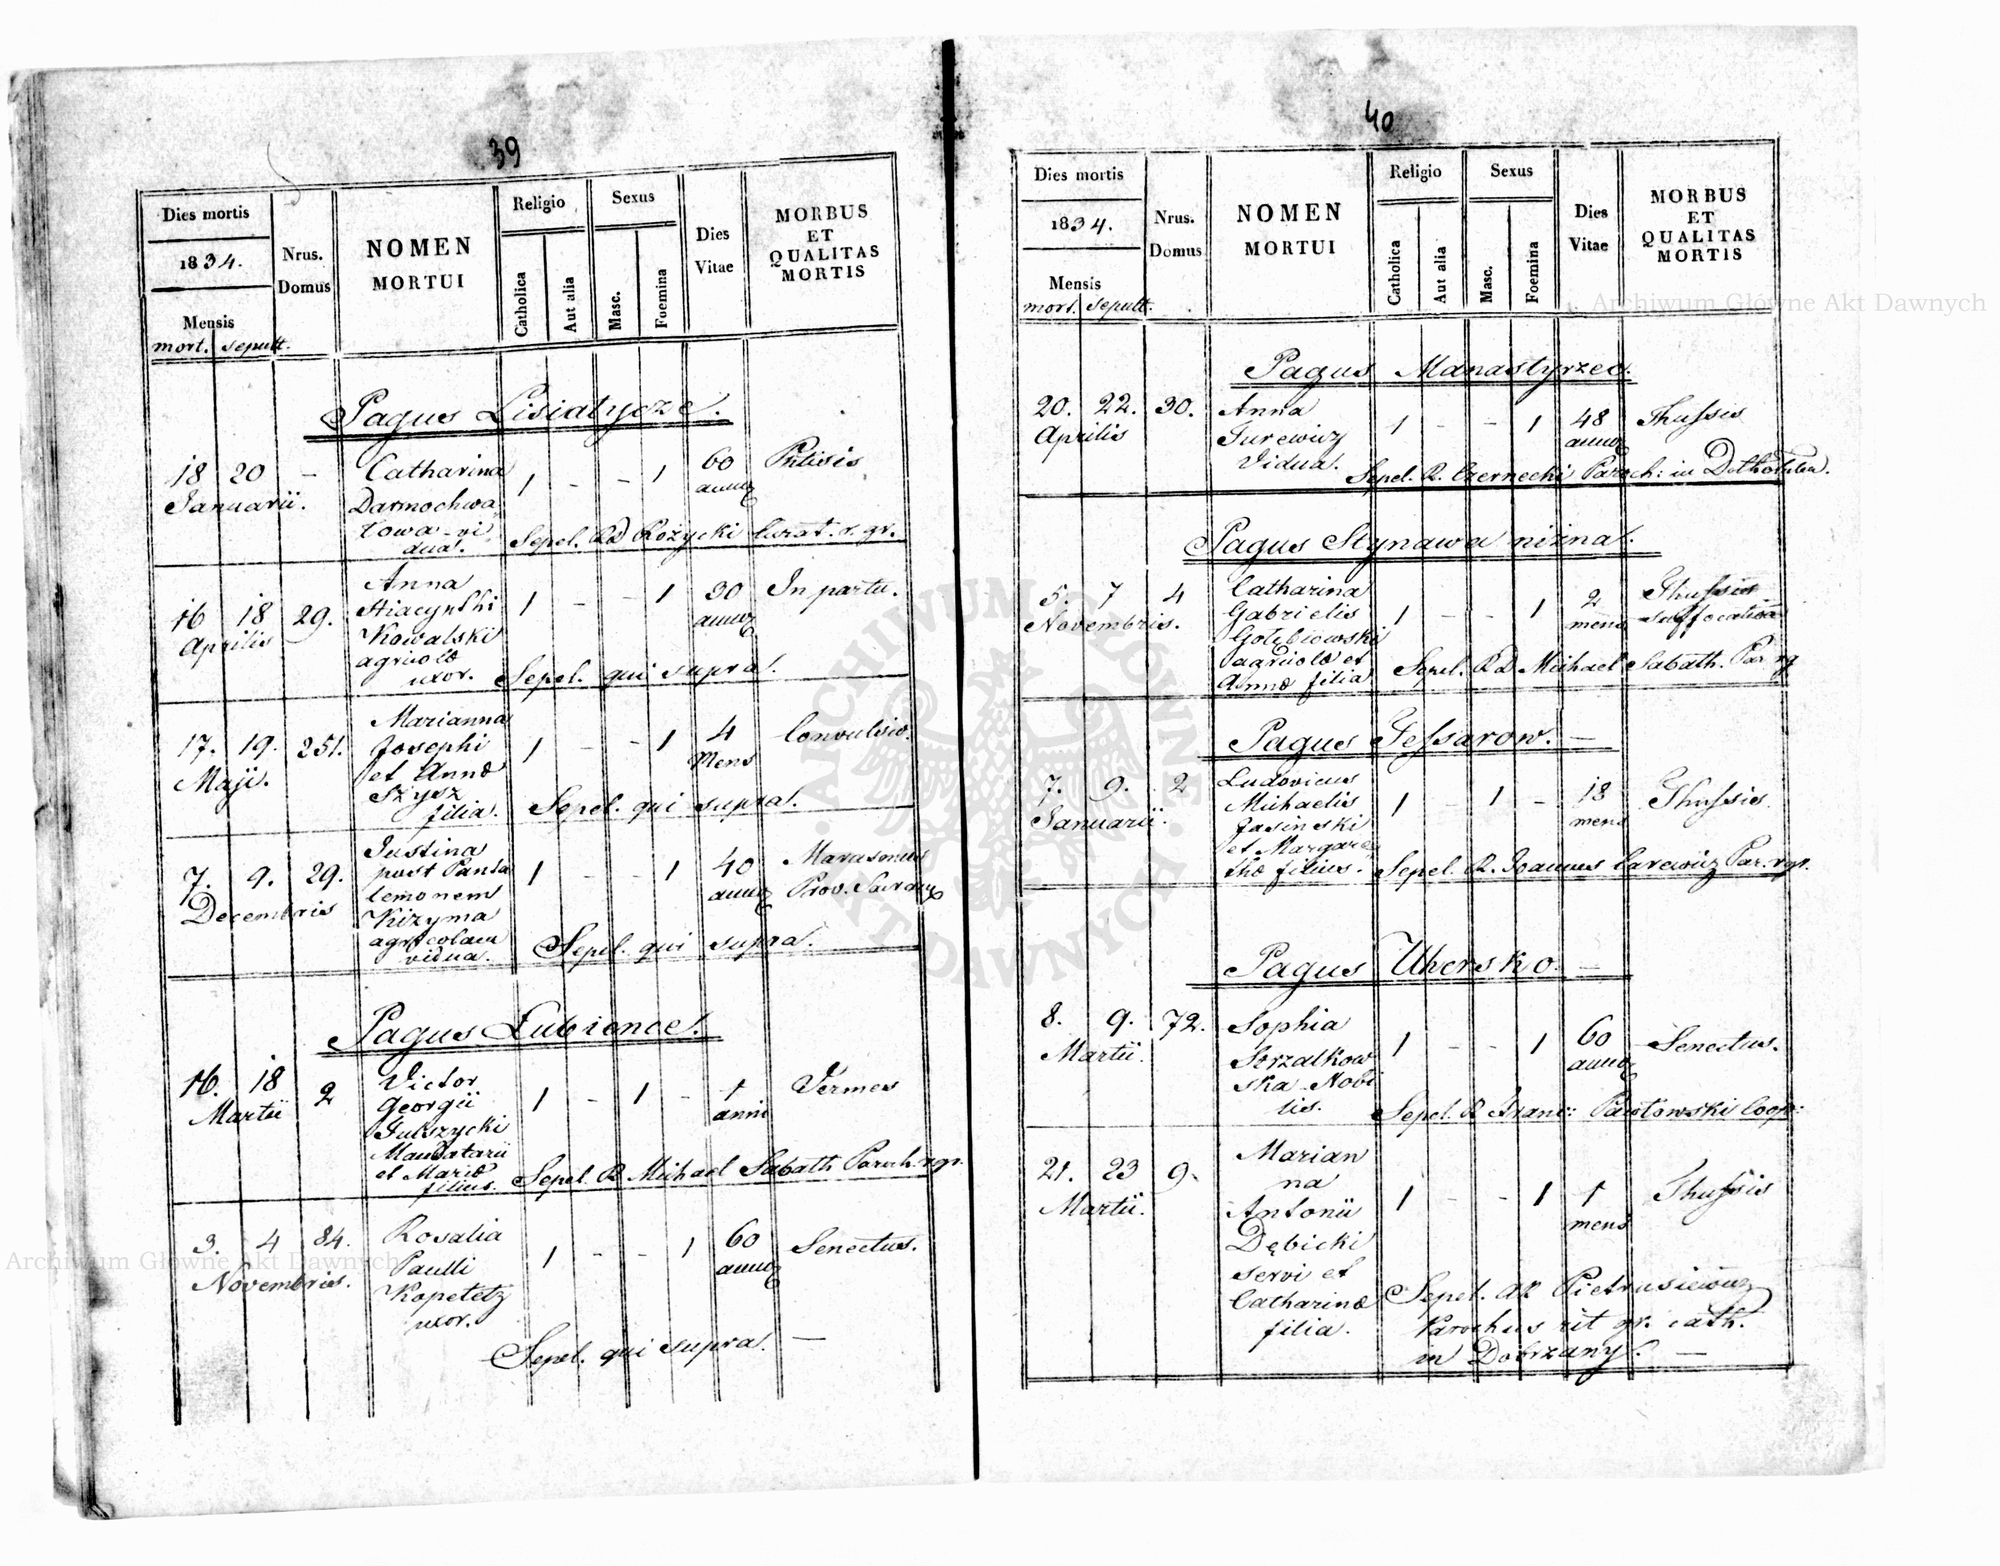 39
Dies mortis
1834.
Mensis
mort. sepult.
Nrus.
Domus
NOMEN
MORTUI
Religio
Catholica
Aut alia
Sexus
Masc.
Foemina
Dies
Vitae
MORBUS
ET
QUALITAS
MORTIS
Pagus Lisiatycze.
18 20 - Catharina 1 - - 1 60 Phtisis
Januarii. Darmochwa annor
towa vi
dua. Sepel. RD Rożycki Curat. r. gr.
16 18 29. Anna 1 - - 1 30 In partu.
Aprilis Hiacynthi annor
Kowalski
agricolæ
uxor. Sepel. qui supra.
17. 19. 251. Marianna 1 - - 1 4 Convulsio.
Maji. Josephi Mens
et Annæ
Szysz
filia. Sepel. qui supra.
7. 9. 29. Justina 1 - - 1 40 Marasmus
Decembris post Panta annor Prov. Sacram
lemonem
Kizyma
agricolam
vidua. Sepel. qui supra.
Pagus Lubience.
16. 18 2 Victor 1 - 1 - 1 Vermes
Martii Georgii anni
Mandatarii
et Mariæ
filius. Sepel. R Michael Sabath Paroch. r. gr.
3. 4 84. Rosalia 1 - - 1 60 Senectus.
Novembris. Paulli annor
Kopetetz
uxor.
Sepel. qui supra. —
40
Dies mortis
1834.
Mensis
mort. sepult.
Nrus.
Domus
NOMEN
MORTUI
Religio
Catholica
Aut alia
Sexus
Masc.
Foemina
Dies
Vitae
MORBUS
ET
QUALITAS
MORTIS
Pagus Manastyrzec.
20. 22. 30. Anna 1 - - 1 48 Thussis
Aprilis Jurewicz annor
Vidua. Sepel. R. Czernecki Paroch: in
Pagus Stynawa niżna.
5. 7 4 Catharina 1 - - 1 2 Thussis
Novembris. Gabrielis mens suffocativa
Gołębiowski
agricolæ et
Annæ filia Sepel. RD Michael Sabath. Par rg
Pagus Jessarow. —
7. 9. 2 Ludovicus 1 - 1 - 18 Thussis
Januarii. Michaelis mens
Jasinski
et Margare
thæ filius. Sepel. R. Joannes Carewicz Par. rgr.
Pagus Uhersko. —
8. 9. 72. Sophia 1 - - 1 60 Senectus.
Martii. Strzalkow annor
ska Nobi
lis. Sepel. R Franc: Pawłowski Coop:
21. 23 9. Marian 1 - - 1 1 Thussis
Martii. na mens
Antonii
Dębicki
servi et
Catharinæ
filia.
Sepel. AR Pietrusiewicz
Parochus rit gr. cath.
in Dobrzany. —
Archiwum Główne Akt Dawnych
Archiwum Główne Akt Dawnych
ARCHIWUM GŁÓWNE AKT DAWNYCH